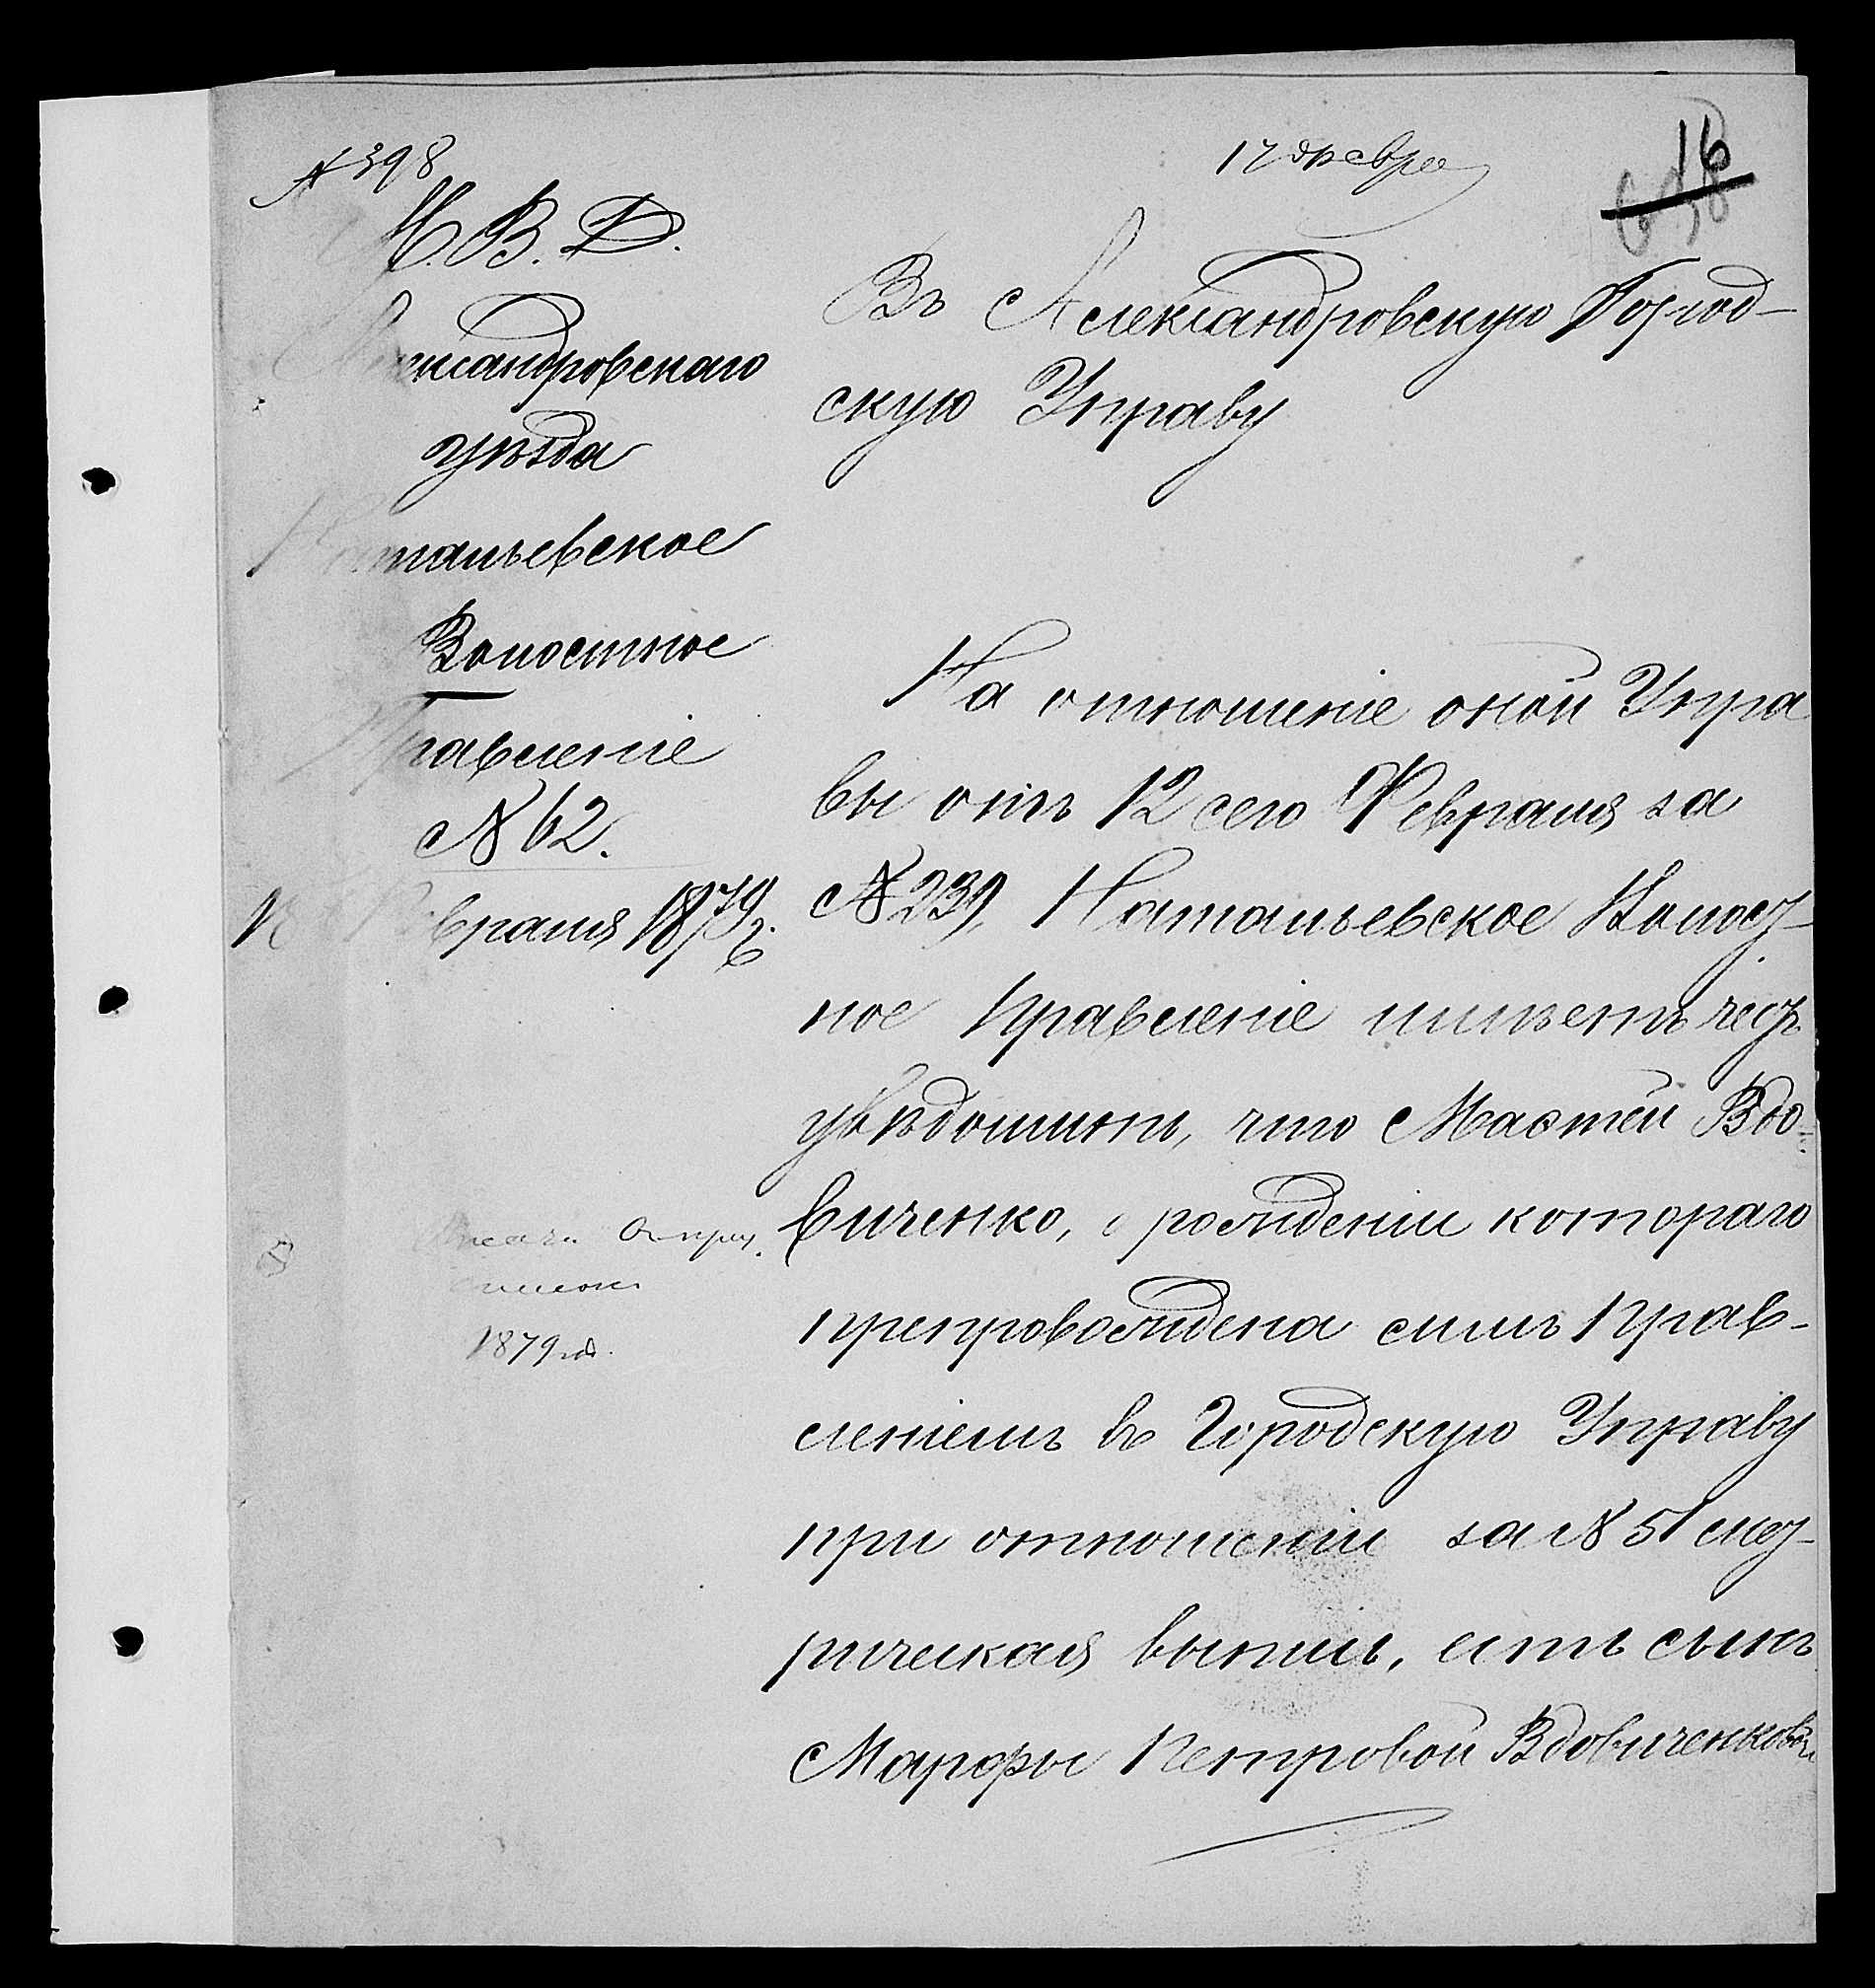 № 398
17 февра
16
М. В. Д.
Александровскаго
уѣзда
Натальевское
Волостное
Правленіе
№ 62.
Февраля 1879 г.
Въ Александровскую Город-
скую Управу
На отношеніе оной Упра
вы отъ 12 сего Февраля за
№ 239, Натальевское Волос-
ное Правленіе имѣетъ честь
увѣдомить, что Мастѣй Вдо-
виченко, о рожденіи котораго
препровождена симъ Прав-
леніемъ въ Городскую Управу
при отношеніи за № 51 мет-
рическая выпись, есть сынъ
Марфы Петровой Вдовиченковой
1879 год.